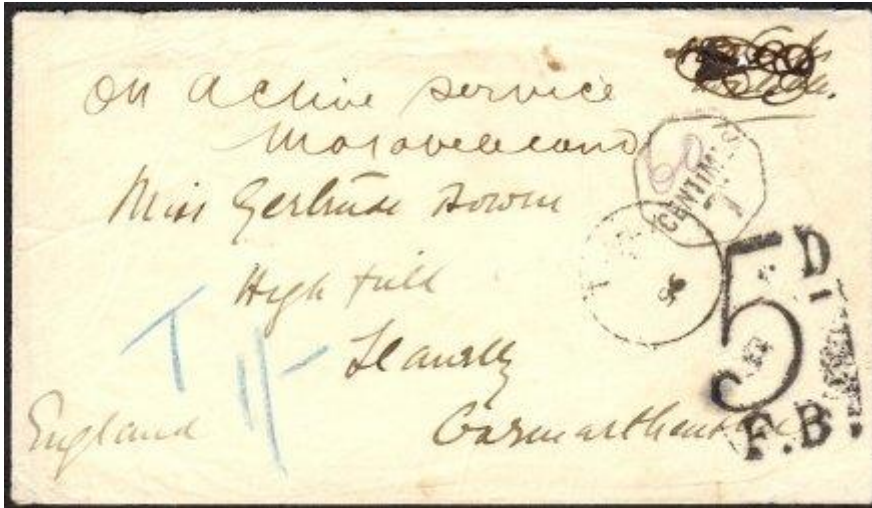 On Active Service
Mashonaland
Miss Gertrude Bowen
High Hill
Llanelly
Carmarthenshire
England
T
1/-
60
CENTIMES
T
96
5D
F.B.